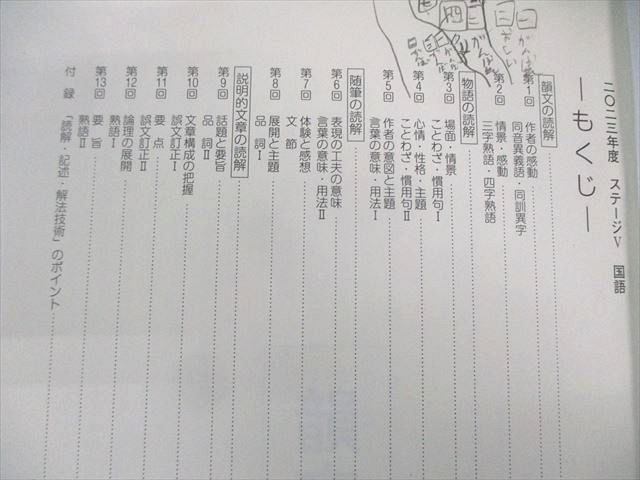 二〇二三年度 ステージⅤ 国語
―もくじ―
韻文の読解
第1回 作者の感動
同音異義語・同訓異字
第2回 情景・感動
三字熟語・四字熟語
物語の読解
第3回 場面・情景
ことわざ・慣用句Ⅰ
第4回 心情・性格・主題
ことわざ・慣用句Ⅱ
第5回 作者の意図と主題
言葉の意味・用法Ⅰ
随筆の読解
第6回 表現の工夫の意味
言葉の意味・用法Ⅱ
第7回 体験と感想
文節
第8回 展開と主題
品詞Ⅰ
説明的文章の読解
第9回 話題と要旨
品詞Ⅱ
第10回 文章構成の把握
誤文訂正Ⅰ
第11回 要点
誤文訂正Ⅱ
第12回 論理の展開
熟語Ⅰ
第13回 要旨
熟語Ⅱ
付録 「読解・記述・解法技術」のポイント